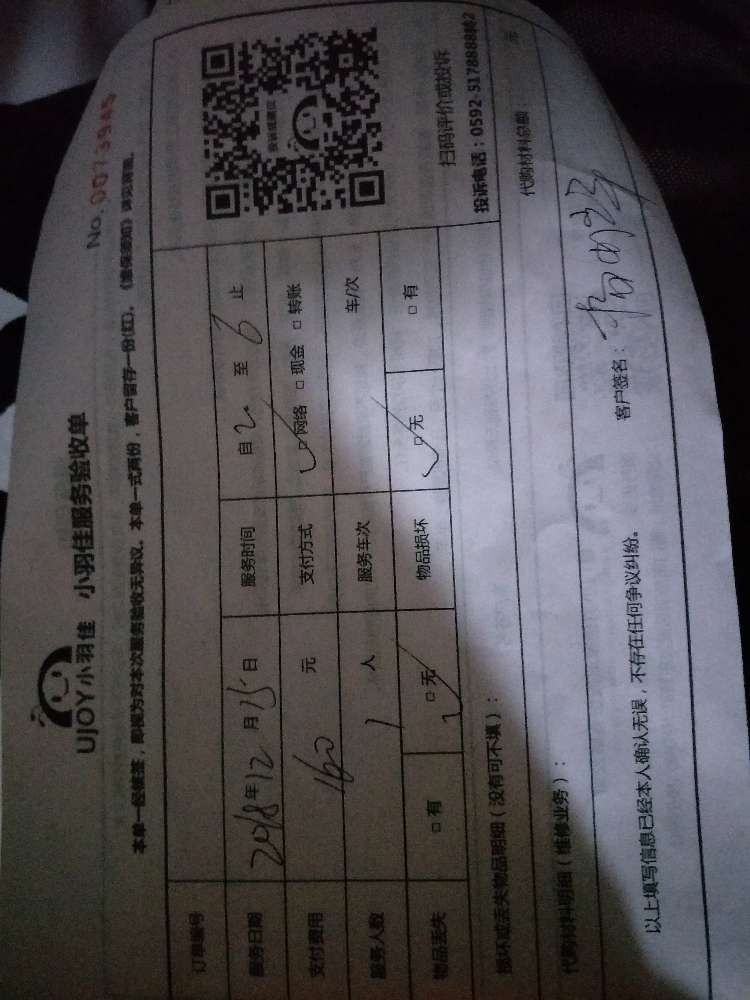 No. 0073945
UJOY小羽佳 小羽佳服务验收单
本单一经签签，即视为对本次服务验收无异议。本单一式两份，客户留存一份(红)。
订单编号
服务日期 2018年12月15日 服务时间 自2至6止
支付费用 160元 支付方式 □网络 □现金 □转账
服务人数 1人 服务车次 车/次
物品丢失 □有 □无 物品损坏 □无 □有
扫码评价或投诉
投诉电话：0592-5178888转2
损坏或丢失物品明细（没有可不填）：
代购材料明细（维修业务）： 代购材料总额： 元
以上填写信息已经本人确认无误，不存在任何争议纠纷。 客户签名：